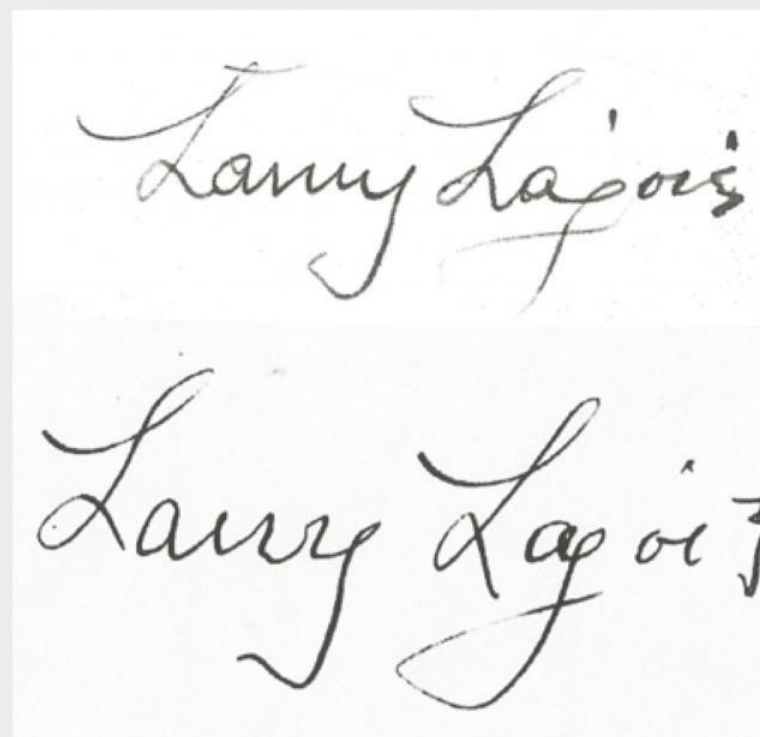 Larry Lagois
Larry Lagois